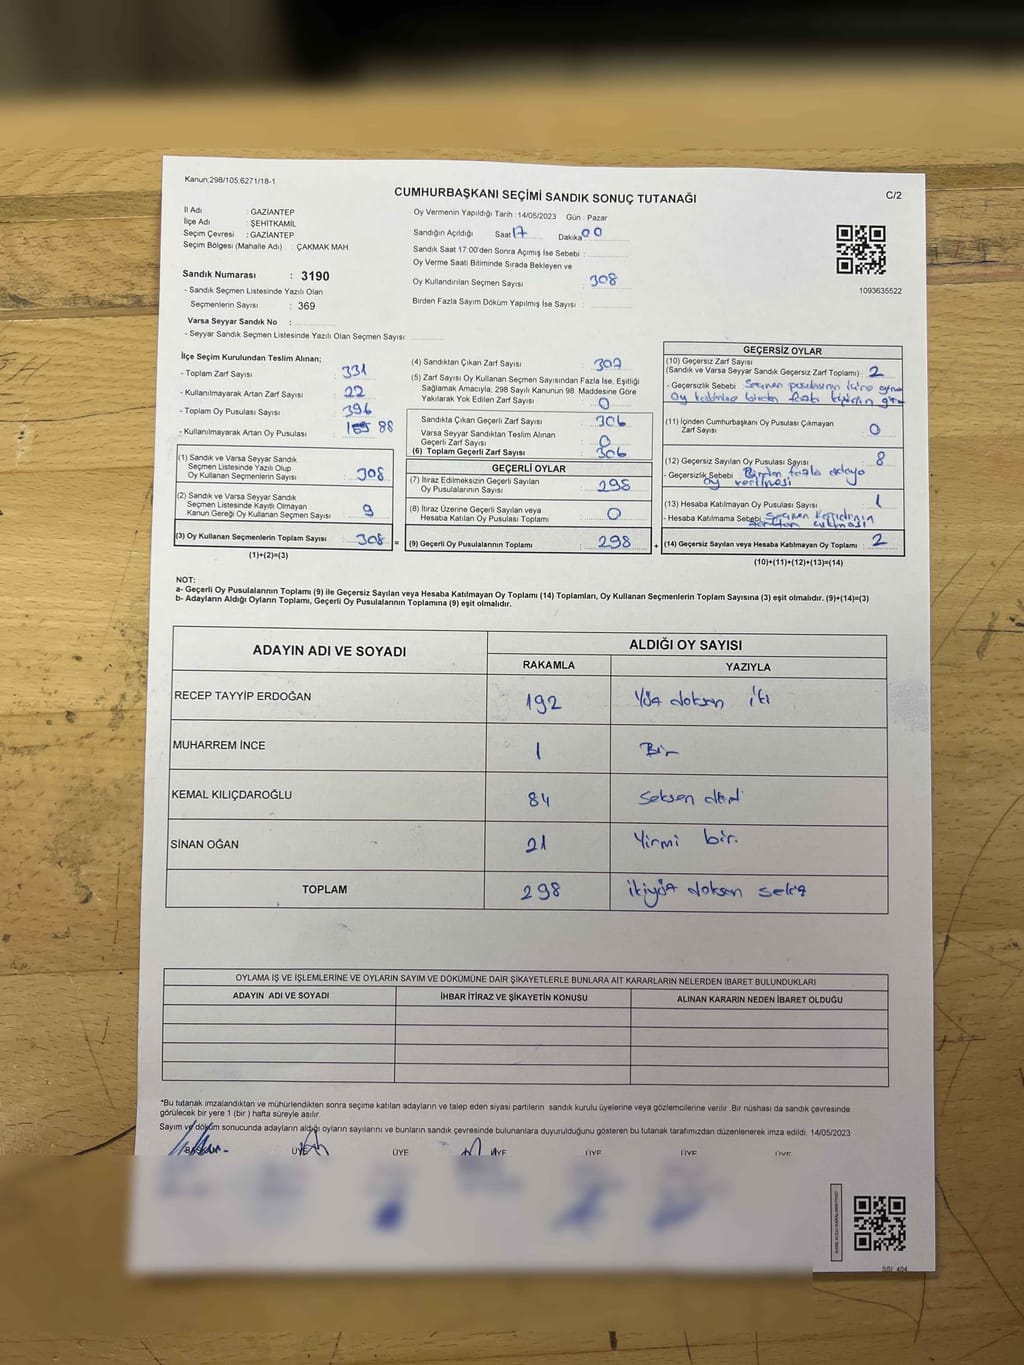 Kanun:298/105;6271/18-1
CUMHURBAŞKANI SEÇİMİ SANDIK SONUÇ TUTANAĞI
C/2
İl Adı : GAZİANTEP
İlçe Adı : ŞEHİTKAMİL
Seçim Çevresi : GAZİANTEP
Seçim Bölgesi (Mahalle Adı) : ÇAKMAK MAH.
Sandık Numarası : 3190
- Sandık Seçmen Listesinde Yazılı Olan
Seçmenlerin Sayısı : 369
Varsa Seyyar Sandık No :
- Seyyar Sandık Seçmen Listesinde Yazılı Olan Seçmen Sayısı:
Oy Vermenin Yapıldığı Tarih : 14/05/2023 Gün : Pazar
Sandığın Açıldığı Saat 17 Dakika 00
Sandık Saat 17.00'den Sonra Açımış İse Sebebi :
Oy Verme Saati Bitiminde Sırada Bekleyen ve
Oy Kullandırılan Seçmen Sayısı : 308
Birden Fazla Sayım Döküm Yapılmış İse Sayısı :
1093635522
İlçe Seçim Kurulundan Teslim Alınan;
- Toplam Zarf Sayısı : 331
- Kullanılmayarak Artan Zarf Sayısı : 22
- Toplam Oy Pusulası Sayısı : 396
- Kullanılmayarak Artan Oy Pusulası : 88
(1) Sandık ve Varsa Seyyar Sandık
Seçmen Listesinde Yazılı Olup
Oy Kullanan Seçmenlerin Sayısı : 308
(2) Sandık ve Varsa Seyyar Sandık
Seçmen Listesinde Kayıtlı Olmayan
Kanun Gereği Oy Kullanan Seçmen Sayısı : 9
(3) Oy Kullanan Seçmenlerin Toplam Sayısı : 308 =
(1)+(2)=(3)
(4) Sandıktan Çıkan Zarf Sayısı : 307
(5) Zarf Sayısı Oy Kullanan Seçmen Sayısından Fazla İse, Eşitliği
Sağlamak Amacıyla, 298 Sayılı Kanunun 98. Maddesine Göre
Yakılarak Yok Edilen Zarf Sayısı : 0
Sandıkta Çıkan Geçerli Zarf Sayısı : 306
Varsa Seyyar Sandıktan Teslim Alınan
Geçerli Zarf Sayısı : 0
(6) Toplam Geçerli Zarf Sayısı : 306
GEÇERLİ OYLAR
(7) İtiraz Edilmeksizin Geçerli Sayılan
Oy Pusulalarının Sayısı : 298
(8) İtiraz Üzerine Geçerli Sayılan veya
Hesaba Katılan Oy Pusulası Toplamı : 0
(9) Geçerli Oy Pusulalarının Toplamı : 298 +
GEÇERSİZ OYLAR
(10) Geçersiz Zarf Sayısı
(Sandık ve Varsa Seyyar Sandık Geçersiz Zarf Toplamı) : 2
- Geçersizlik Sebebi
Oy birden fazla
(11) İçinden Cumhurbaşkanı Oy Pusulası Çıkmayan
Zarf Sayısı : 0
(12) Geçersiz Sayılan Oy Pusulası Sayısı : 8
- Geçersizlik Sebebi Birden fazla adaya
oy verilmesi
(13) Hesaba Katılmayan Oy Pusulası Sayısı : 1
- Hesaba Katılmama Sebebi
(14) Geçersiz Sayılan veya Hesaba Katılmayan Oy Toplamı : 2
(10)+(11)+(12)+(13)=(14)
NOT:
a- Geçerli Oy Pusulalarının Toplamı (9) ile Geçersiz Sayılan veya Hesaba Katılmayan Oy Toplamı (14) Toplamları, Oy Kullanan Seçmenlerin Toplam Sayısına (3) eşit olmalıdır. (9)+(14)=(3)
b- Adayların Aldığı Oyların Toplamı, Geçerli Oy Pusulalarının Toplamına (9) eşit olmalıdır.
ADAYIN ADI VE SOYADI
ALDIĞI OY SAYISI
RAKAMLA YAZIYLA
RECEP TAYYİP ERDOĞAN 192 Yüz doksan iki
MUHARREM İNCE 1 Bir
KEMAL KILIÇDAROĞLU 84 Seksen dört
SİNAN OĞAN 21 Yirmi bir.
TOPLAM 298 ikiyüz doksan sekiz
OYLAMA İŞ VE İŞLEMLERİNE VE OYLARIN SAYIM VE DÖKÜMÜNE DAİR ŞİKAYETLERLE BUNLARA AİT KARARLARIN NELERDEN İBARET BULUNDUKLARI
ADAYIN ADI VE SOYADI İHBAR İTİRAZ VE ŞİKAYETİN KONUSU ALINAN KARARIN NEDEN İBARET OLDUĞU
*Bu tutanak imzalandıktan ve mühürlendikten sonra seçime katılan adayların ve talep eden siyasi partilerin sandık kurulu üyelerine veya gözlemcilerine verilir. Bir nüshası da sandık çevresinde
görülecek bir yere 1 (bir) hafta süreyle asılır.
Sayım ve döküm sonucunda adayların aldığı oyların sayılarını ve bunların sandık çevresinde bulunanlara duyurulduğunu gösteren bu tutanak tarafımızdan düzenlenerek imza edildi. 14/05/2023
BAŞKAN ÜYE ÜYE ÜYE ÜYE ÜYE ÜYE